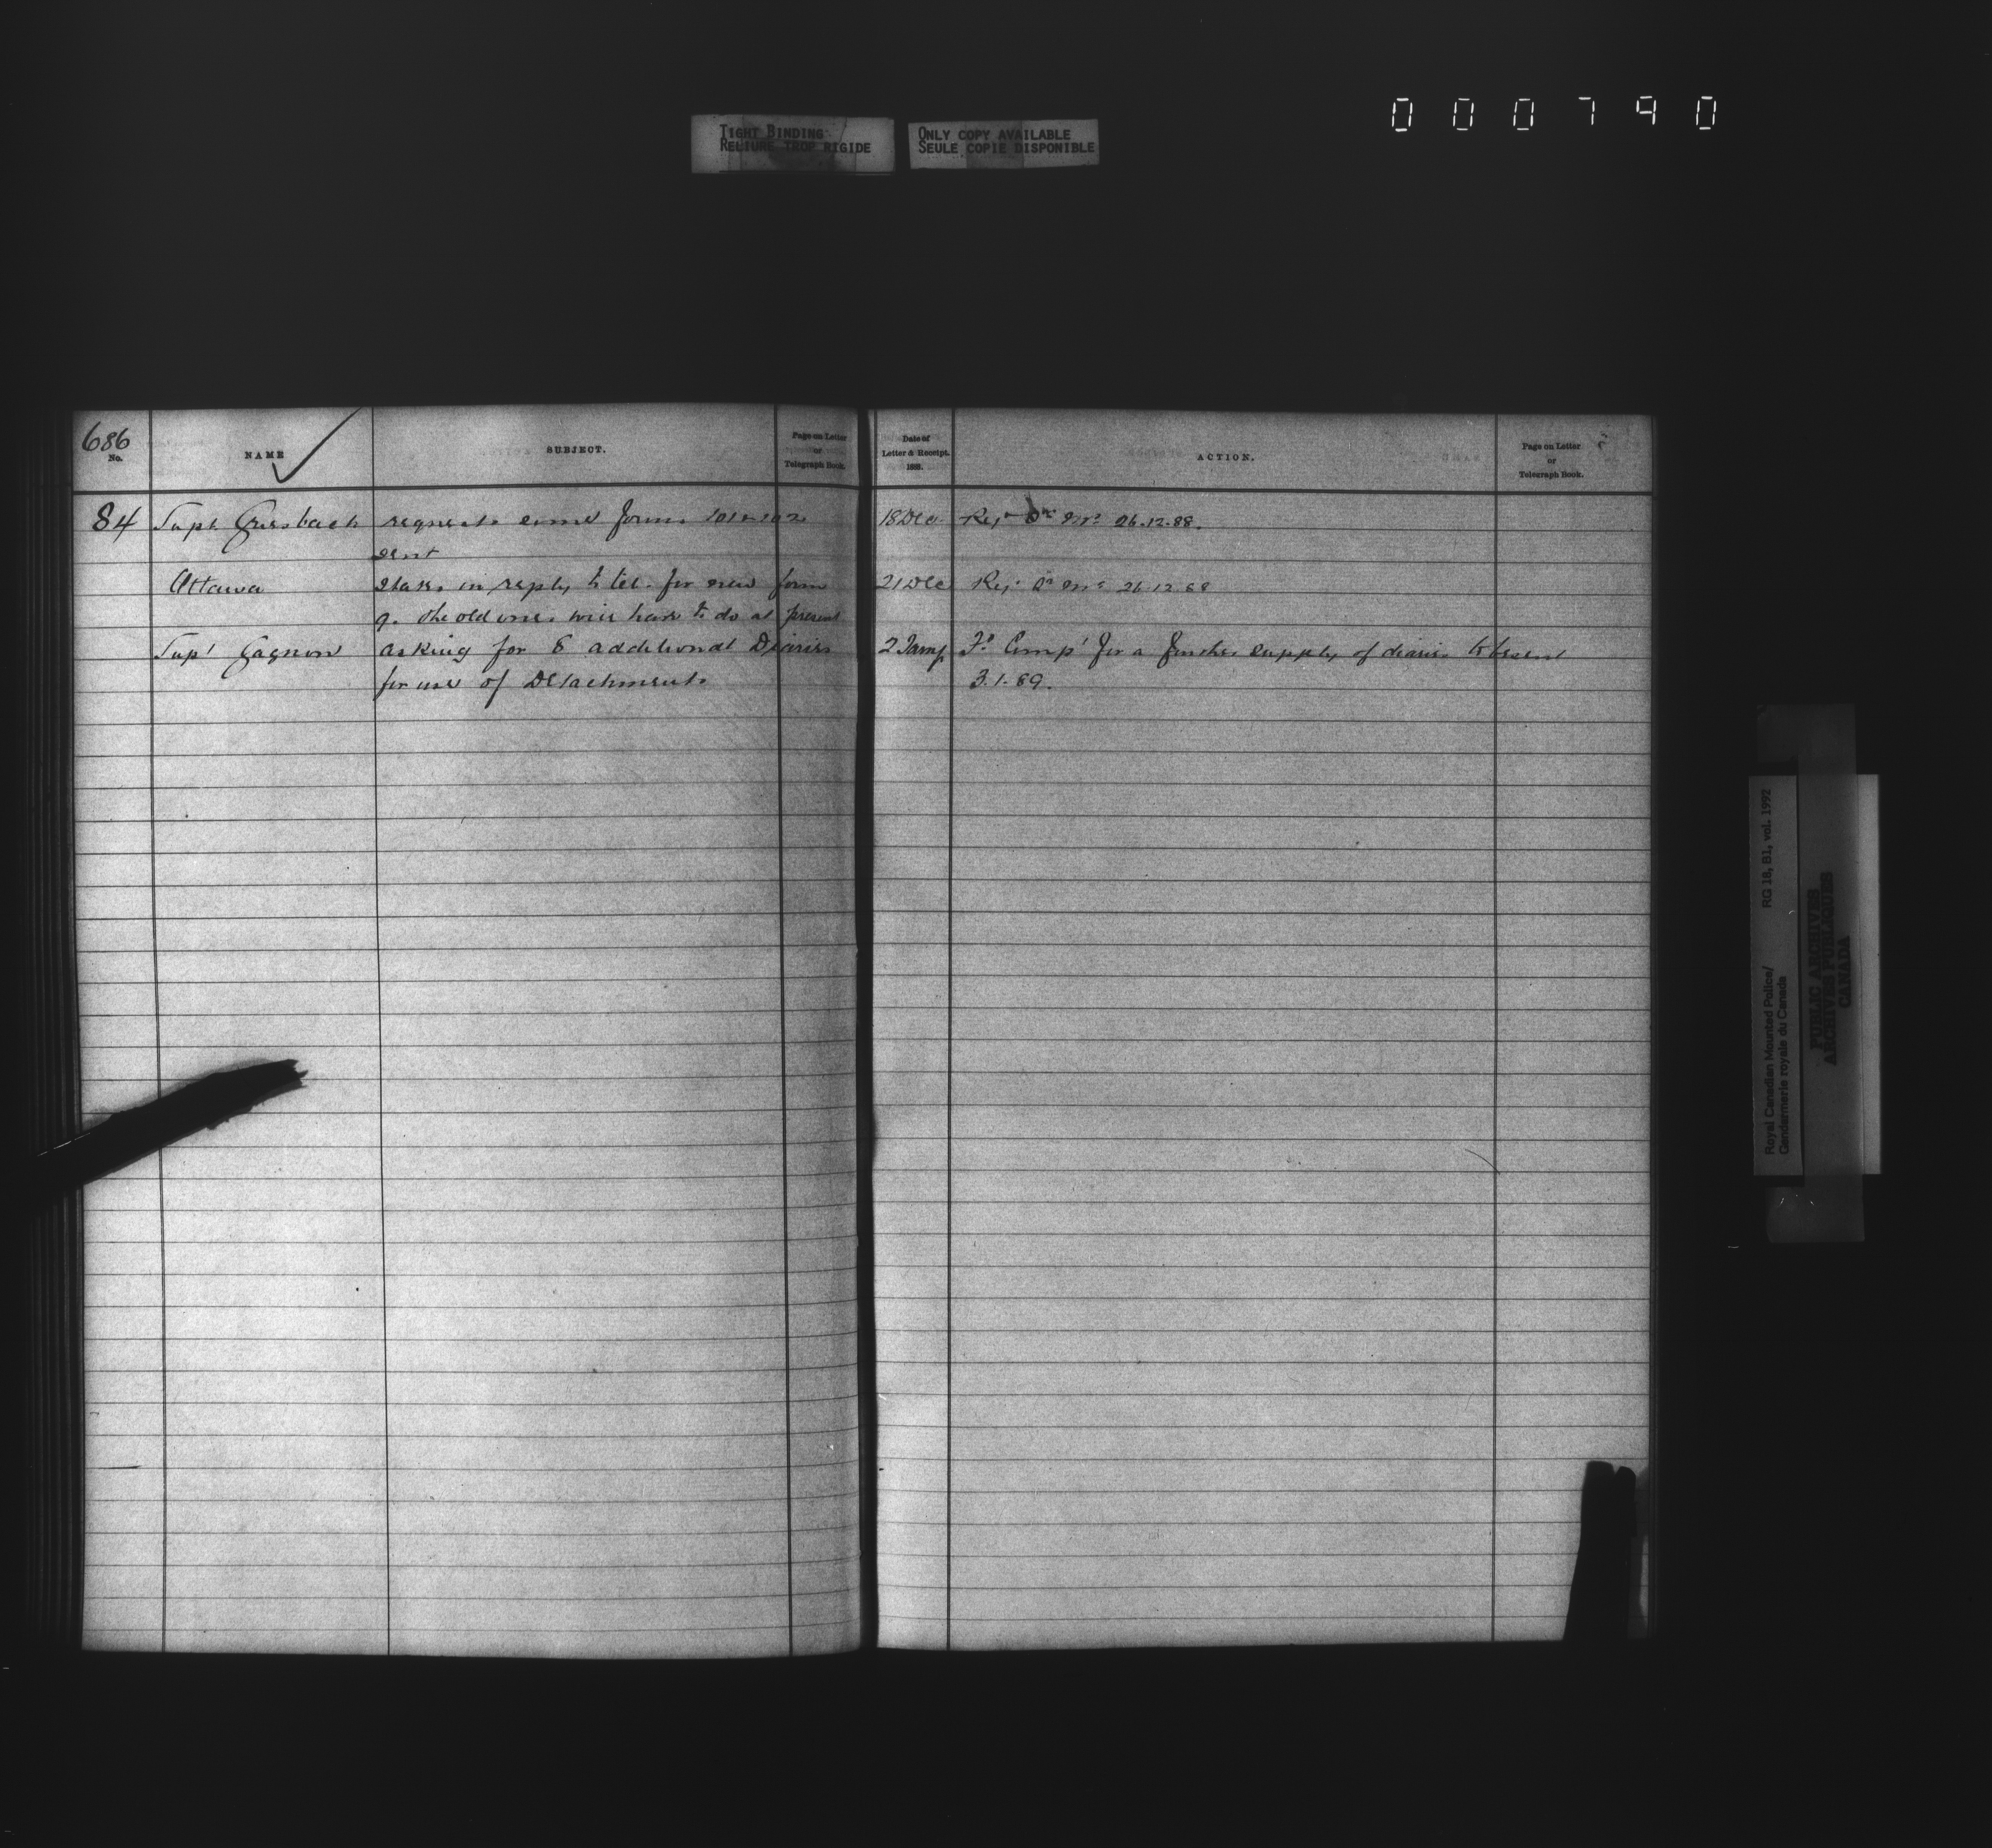 000790
TIGHT BINDING
RELIURE TROP RIGIDE
ONLY COPY AVAILABLE
SEULE COPIE DISPONIBLE
686
No.
NAME
SUBJECT.
Page on Letter
or
Telegraph Book.
Date of
Letter & Receipt.
188 .
ACTION.
Page on Letter
or
Telegraph Book.
84 Supt Griesbach requests some forms 101 & 102 18 Dec 26.12.88.
sent
Ottawa states in reply to tel. for new form 21 Dec 26.12.88
the old ones will have to do at present
Supt Gagnon asking for 8 additional Diaries 2 Jany for a further supply of diaries to be sent
for use of Detachments 3.1.89.
Royal Canadian Mounted Police/
Gendarmerie royale du Canada
RG 18, B1, vol. 1992
PUBLIC ARCHIVES
ARCHIVES PUBLIQUES
CANADA